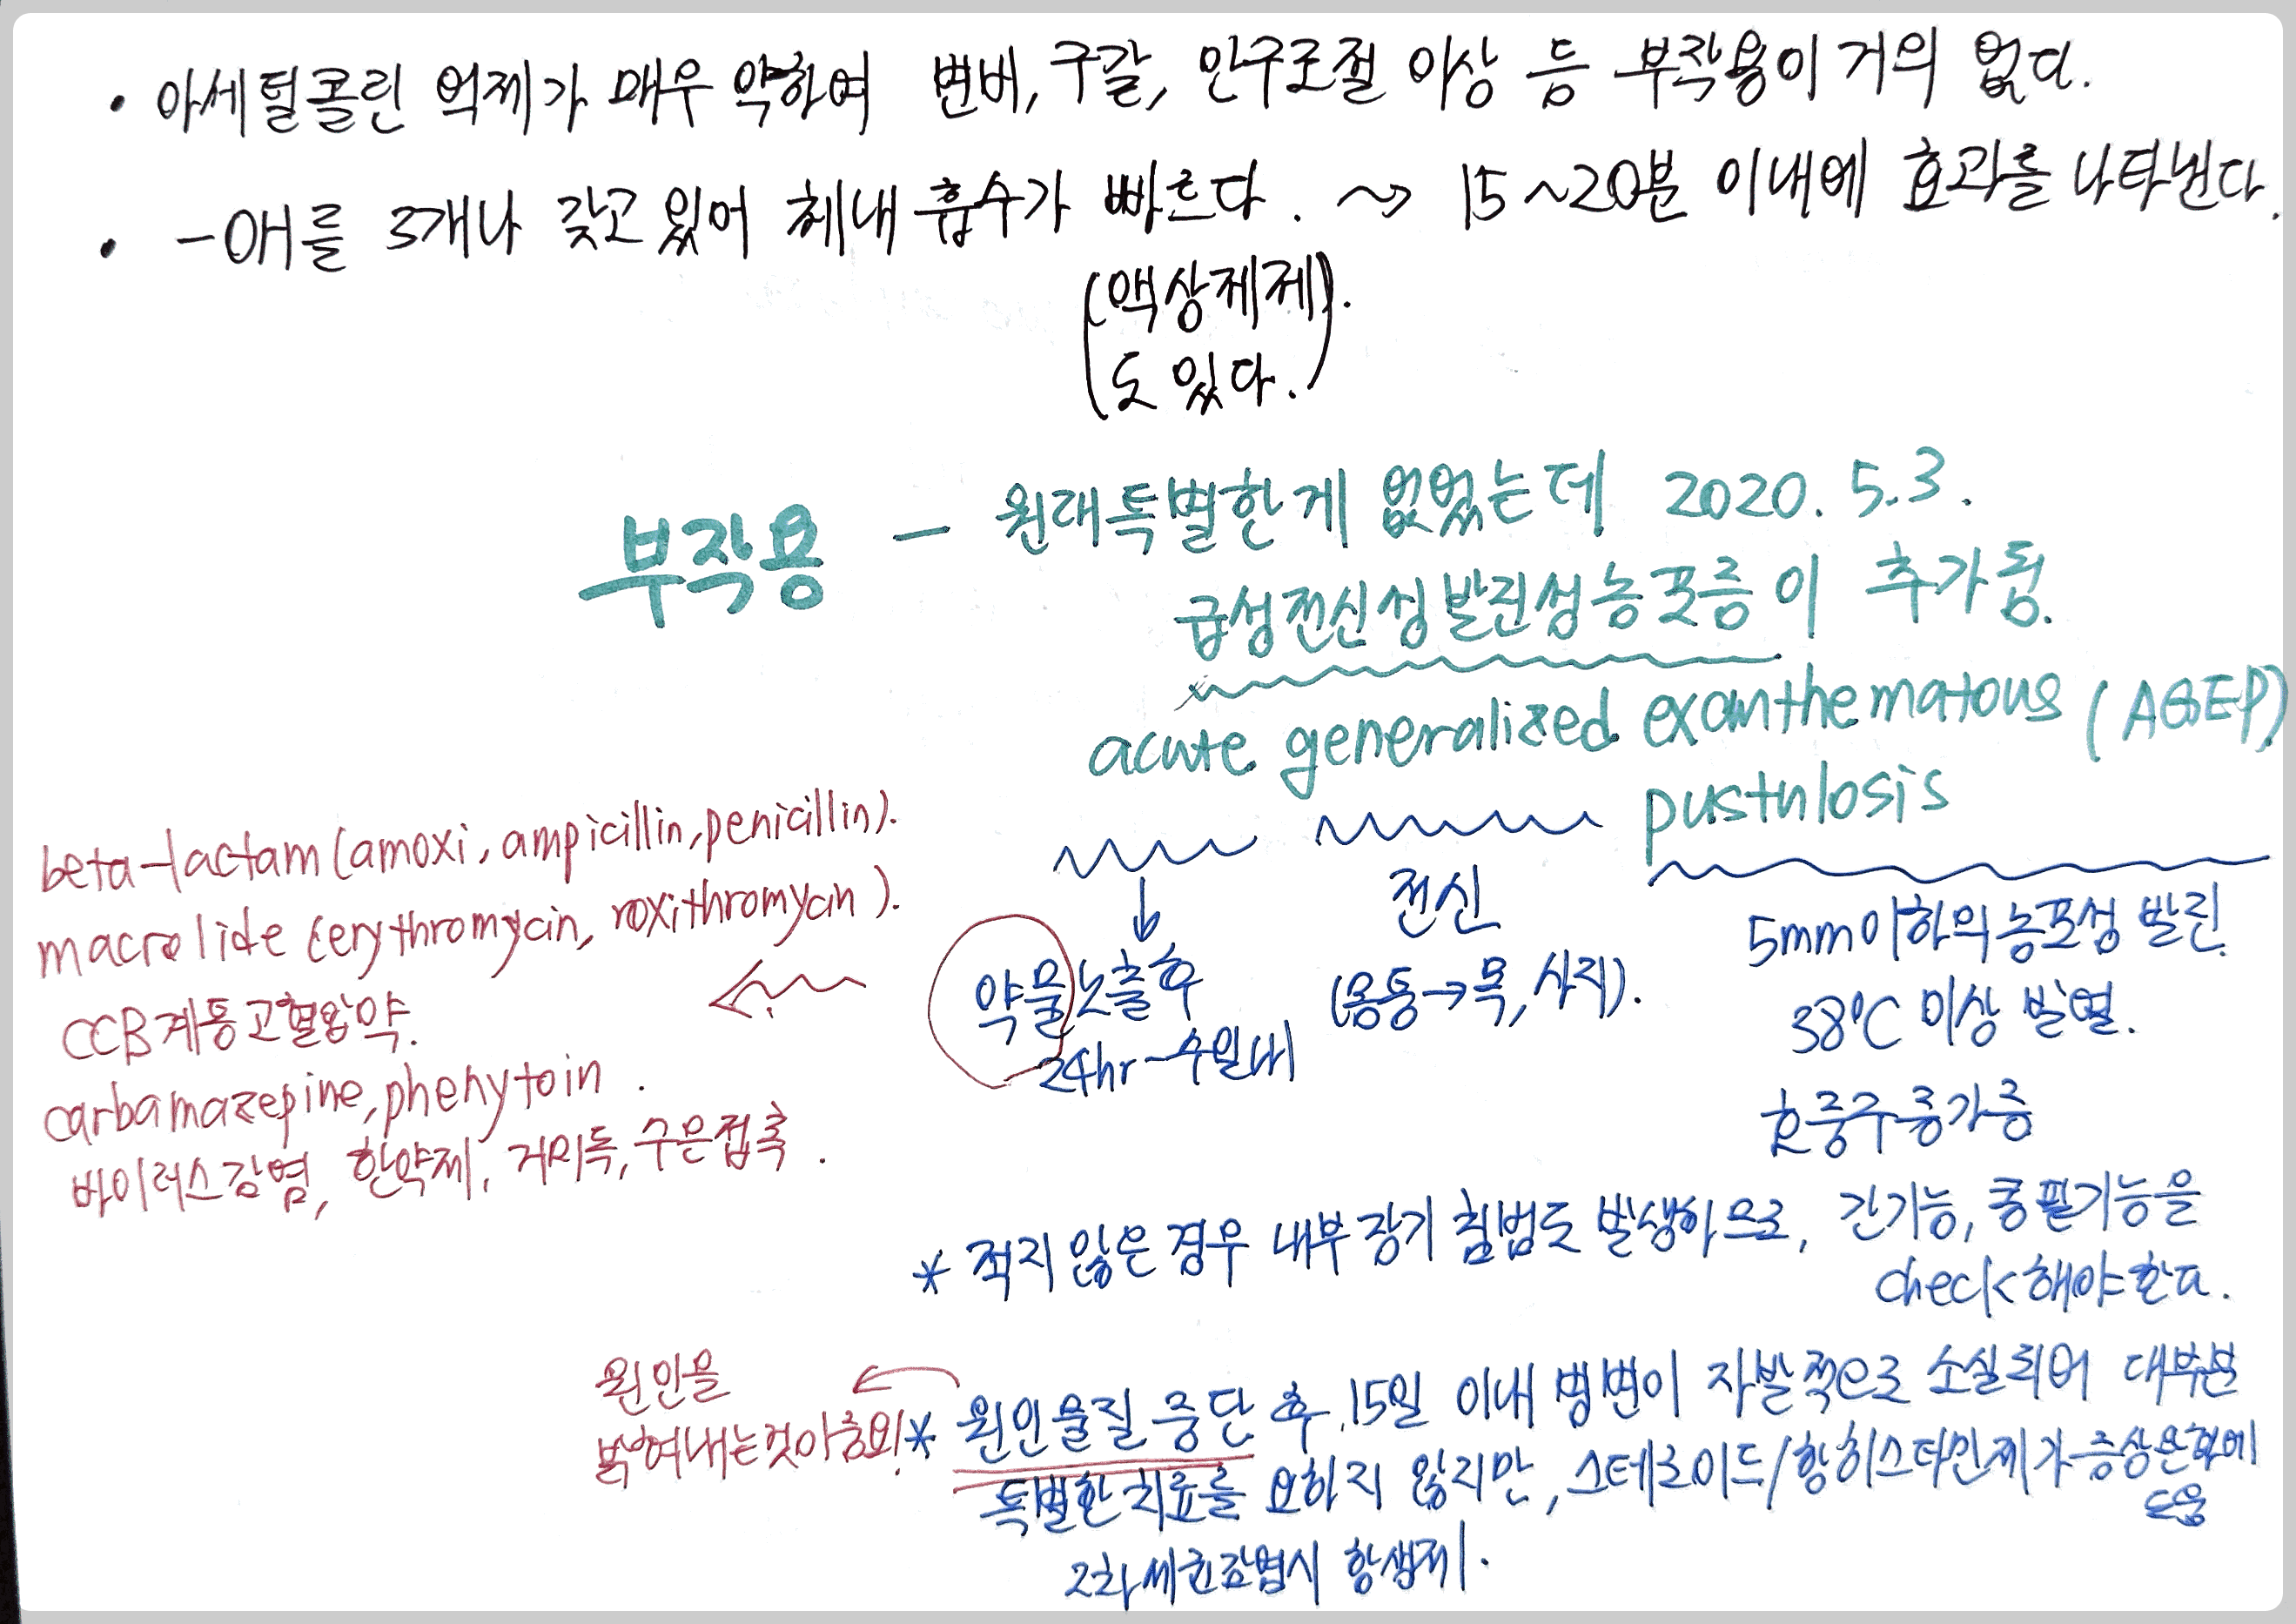 • 아세틸콜린 억제가 매우 약하여 변비, 구갈, 안구조절 이상 등 부작용이 거의 없다.
• -OH를 3개나 갖고 있어 체내 흡수가 빠르다. ~> 15~20분 이내에 효과를 나타낸다.
(액상제제)
도 있다.
부작용 - 원래특별한게 없었는데 2020. 5.3.
급성전신성발진성농포증이 추가됨.
acute generalized exanthematous (AGEP)
pustulosis
beta-lactam (amoxi, ampicillin, penicillin).
macrolide (erythromycin, roxithromycin).
CCB계통고혈압약.
carbamazepine, phenytoin.
바이러스감염, 한약제, 거미독, 수은접촉.
약물노출후
24hr-수일내
전신
(몸통→목, 사지).
5mm이하의농포성 발진.
38°C 이상 발열.
호중구증가증
* 적지 않은 경우 내부장기 침범도 발생하므로, 간기능, 콩팥기능을
check해야한다.
원인을
밝혀내는것이중요!
* 원인물질 중단 후 15일 이내 병변이 자발적으로 소실되어 대부분
특별한치료를 요하지 않지만, 스테로이드/항히스타민제가증상완화에
도움
2차세균감염시 항생제.